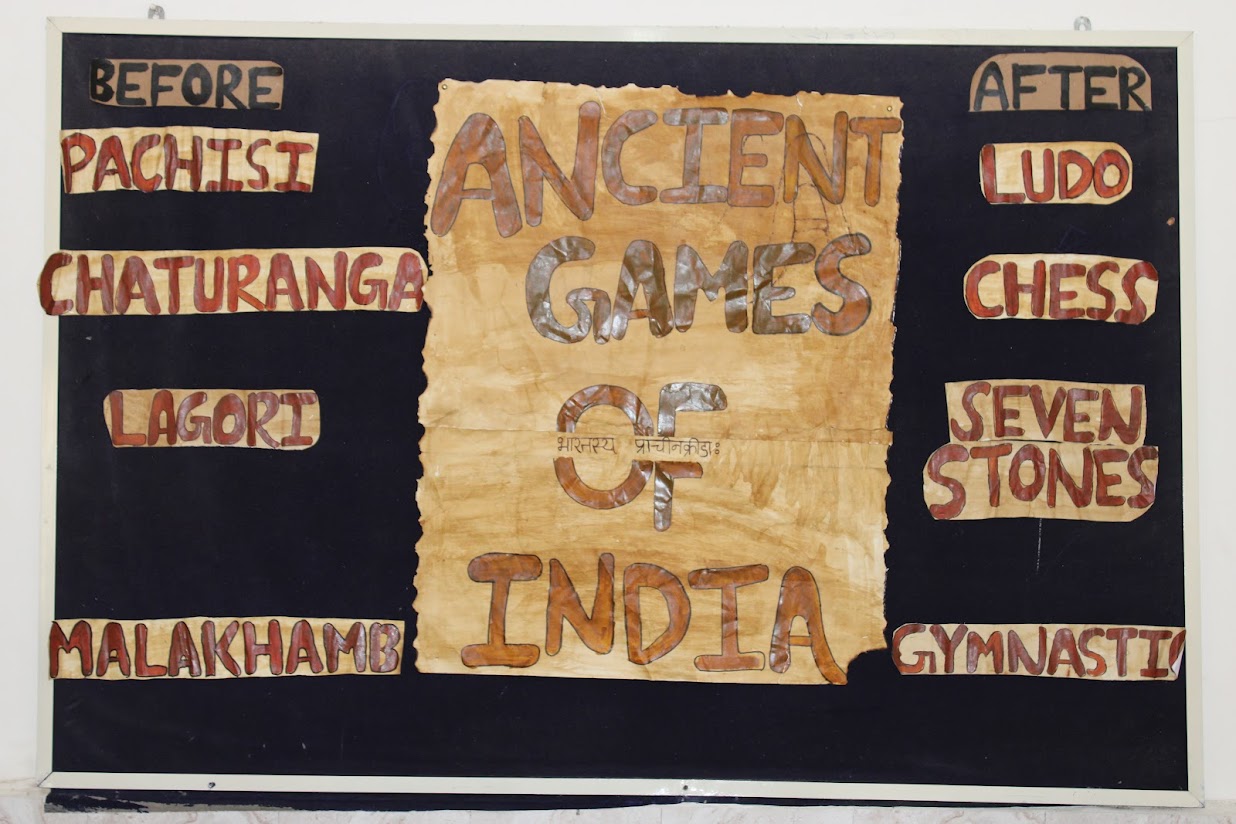 BEFORE
PACHISI
CHATURANGA
LAGORI
MALAKHAMB
ANCIENT
GAMES
OF
भारतस्य प्राचीनक्रीडाः
INDIA
AFTER
LUDO
CHESS
SEVEN
STONES
GYMNASTIC